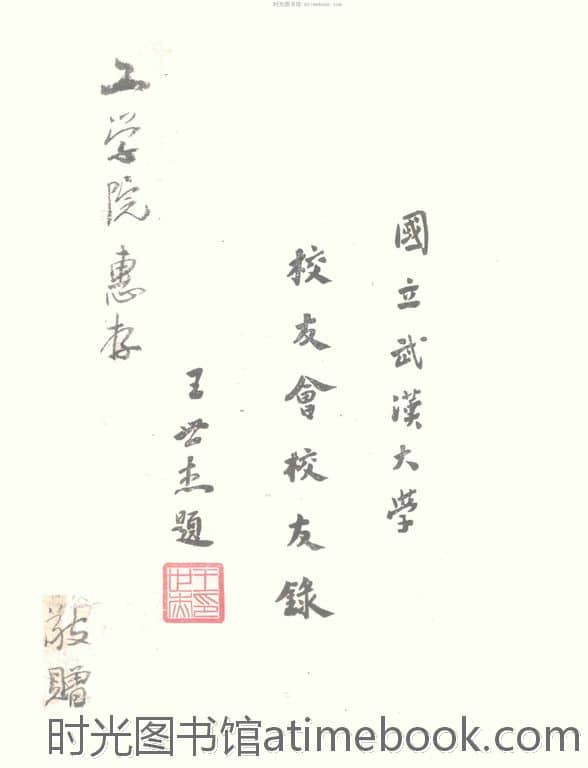 时光图书馆 atimebook.com
國立武漢大学
校友會校友錄
王世杰題
工学院惠存
敬贈
时光图书馆atimebook.com